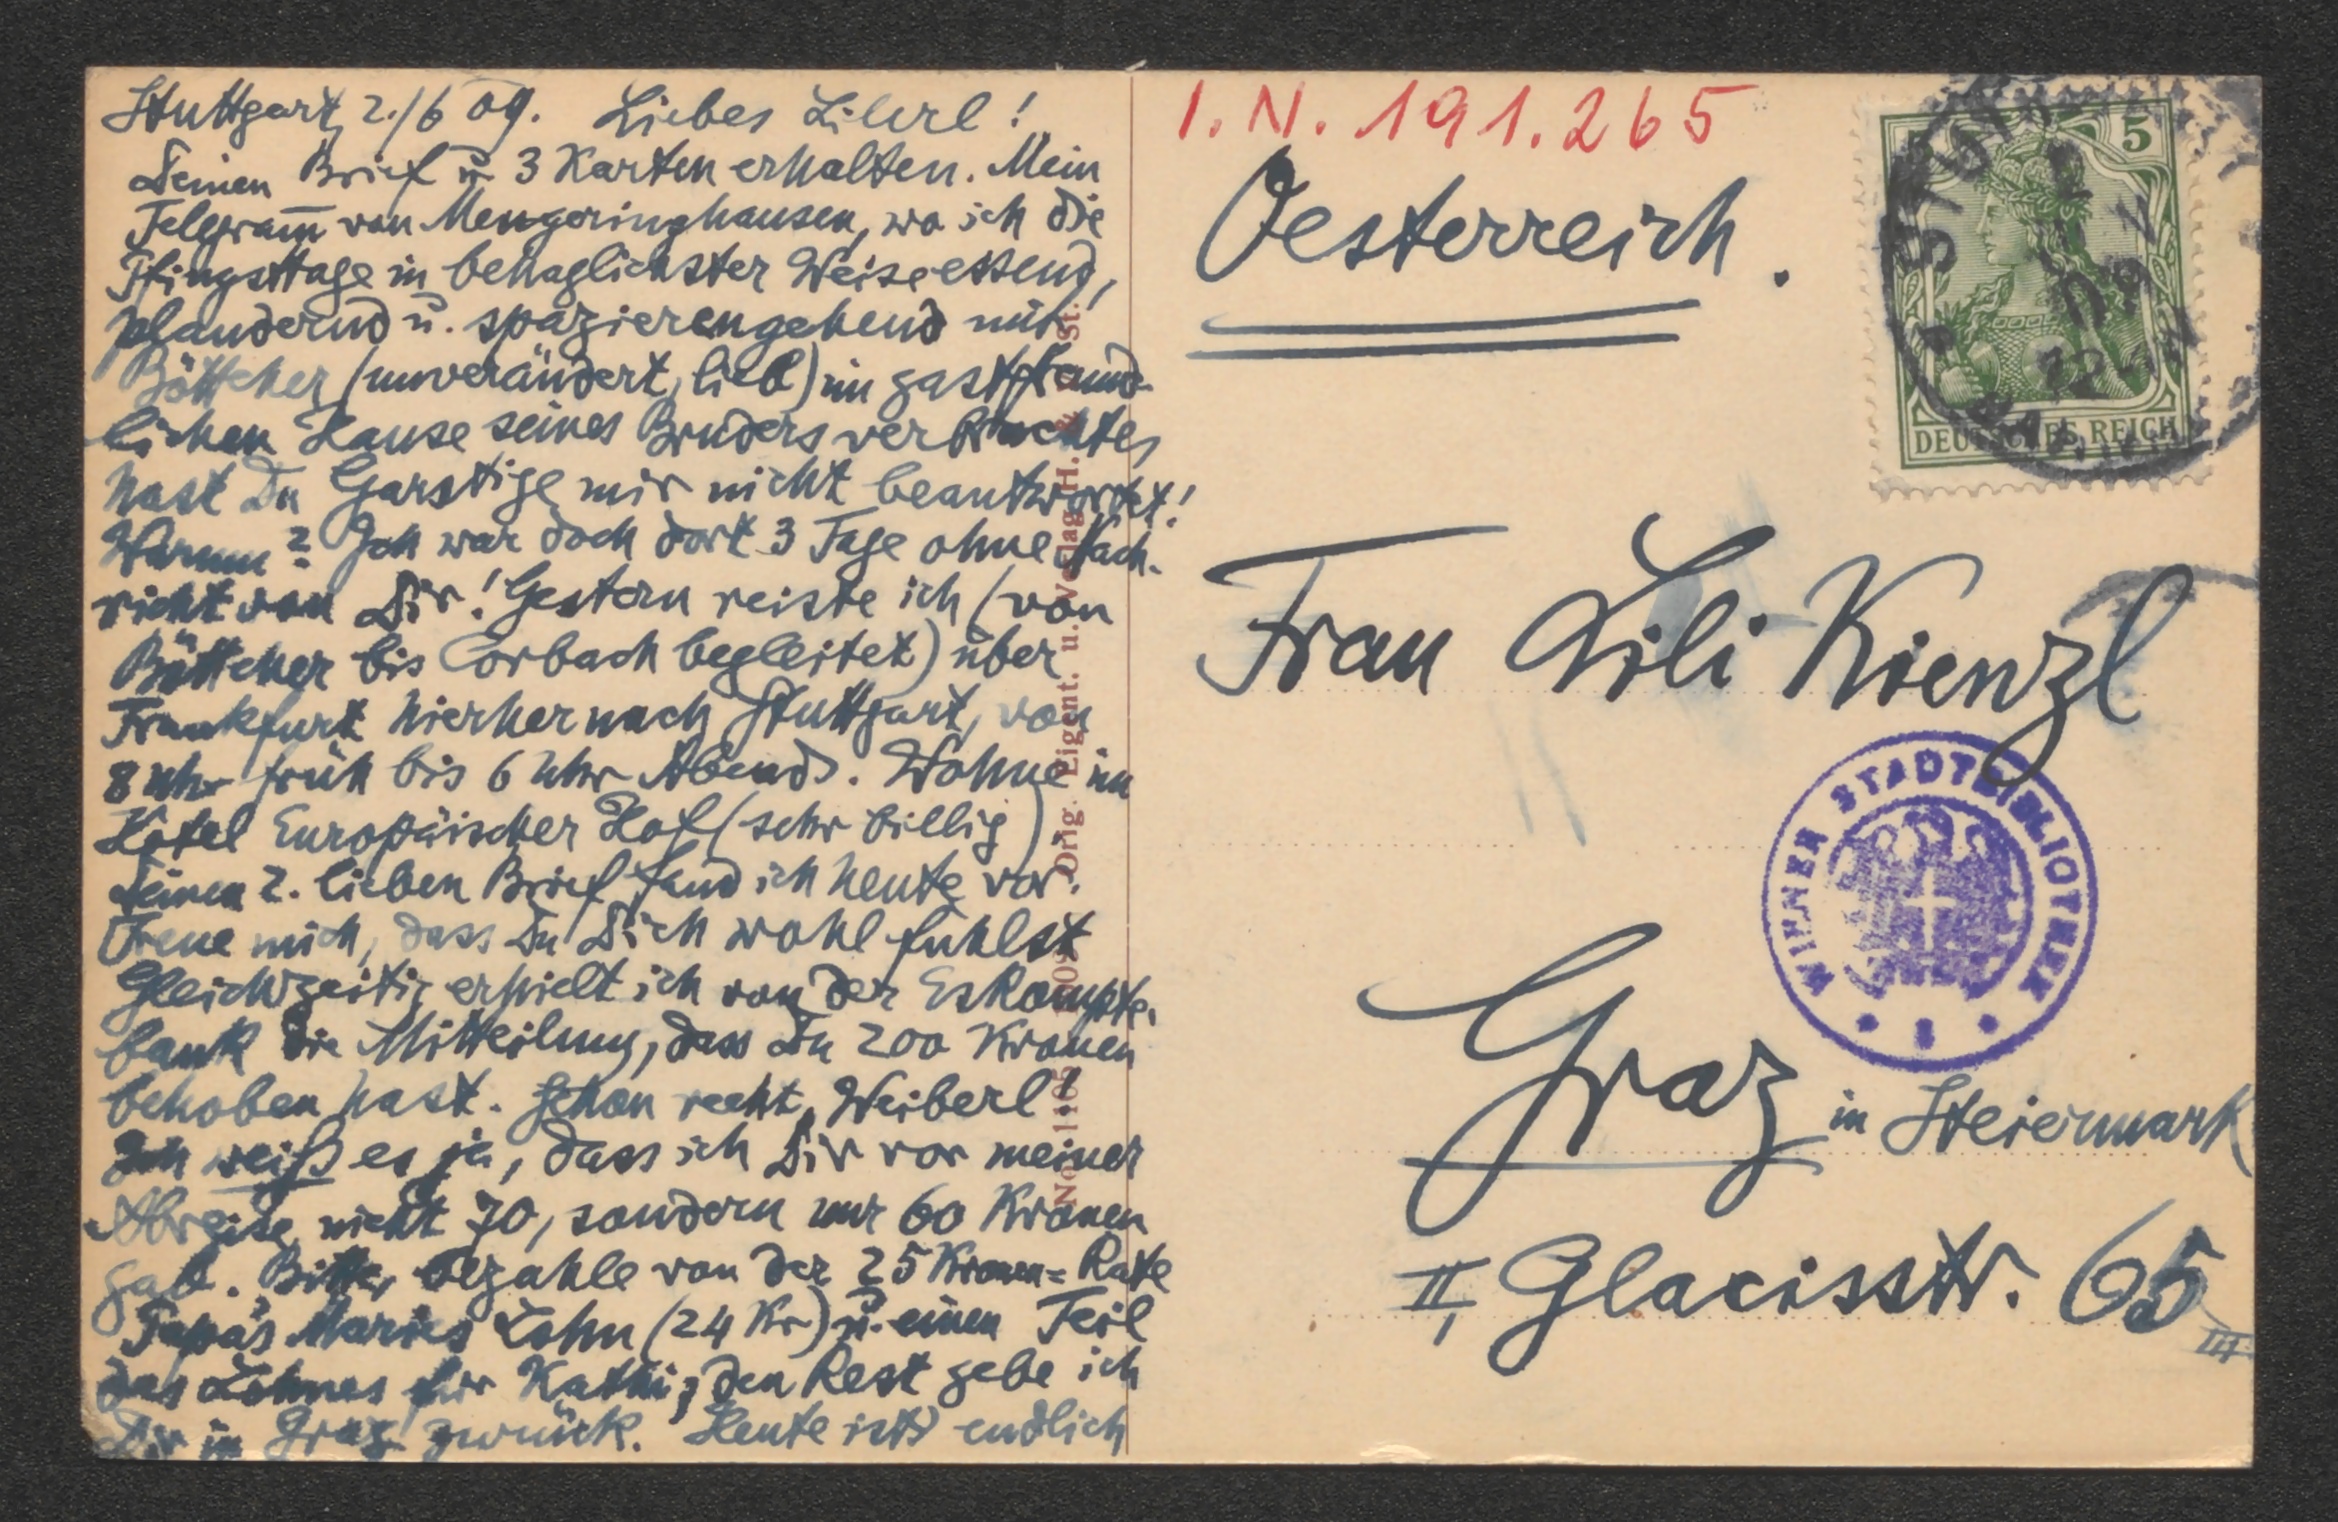 Stuttgart, 2./6 09. Liebes Lilerl!
Deinen Brief u. 3 Karten erhalten. Mein
Telegram̅ von Mengeringhausen, wo ich die
Pfingsttage in behaglichster Weise essend,
plaudernd u. spazierengehend mit
Böttcher (unverändert, lieb) im gastfreund-
lichen Hause seines Bruders verbrachte,
hast Du Garstige mir nicht beantwortet!
Warum? Ich war doch dort 3 Tage ohne Nach-
richt von Dir! Gestern reiste ich (von
Böttcher bis Corbach begleitet) über
Frankfurt hierher nach Stuttgart, von
8 Uhr früh bis 6 Uhr Abends. Wohne im
Hotel Europäischer Hof (sehr billig)
Deinen 2. lieben Brief fand ich heute vor.
Freue mich, dass Du Dich wohl fühlst
Gleichzeitig erhielt ich von der Eskompte-
bank die Mitteilung, dass Du 200 Kronen
behoben hast. Schon recht, Weiberl!
Ich weiß es ja, dass ich Dir vor meiner
Abreise nicht 70, sondern nur 60 Kronen
gab. Bitte, bezahle von der 25 Kronen=Rate
Papa's Maries Lohn (24 Kr) u. einen Teil
des Lohnes für Kathi; den Rest gebe ich
Dir in Graz zurück. Heute ist's endlich
Orig. Eigent. u. Verlag H. St.
I.N. 191.265
Oesterreich.
5
DEUTSCHES REICH
Frau Lili Kienzl
WIENER STADTBIBLIOTHEK
Graz in Steiermark
II, Glacisstr. 65
III.